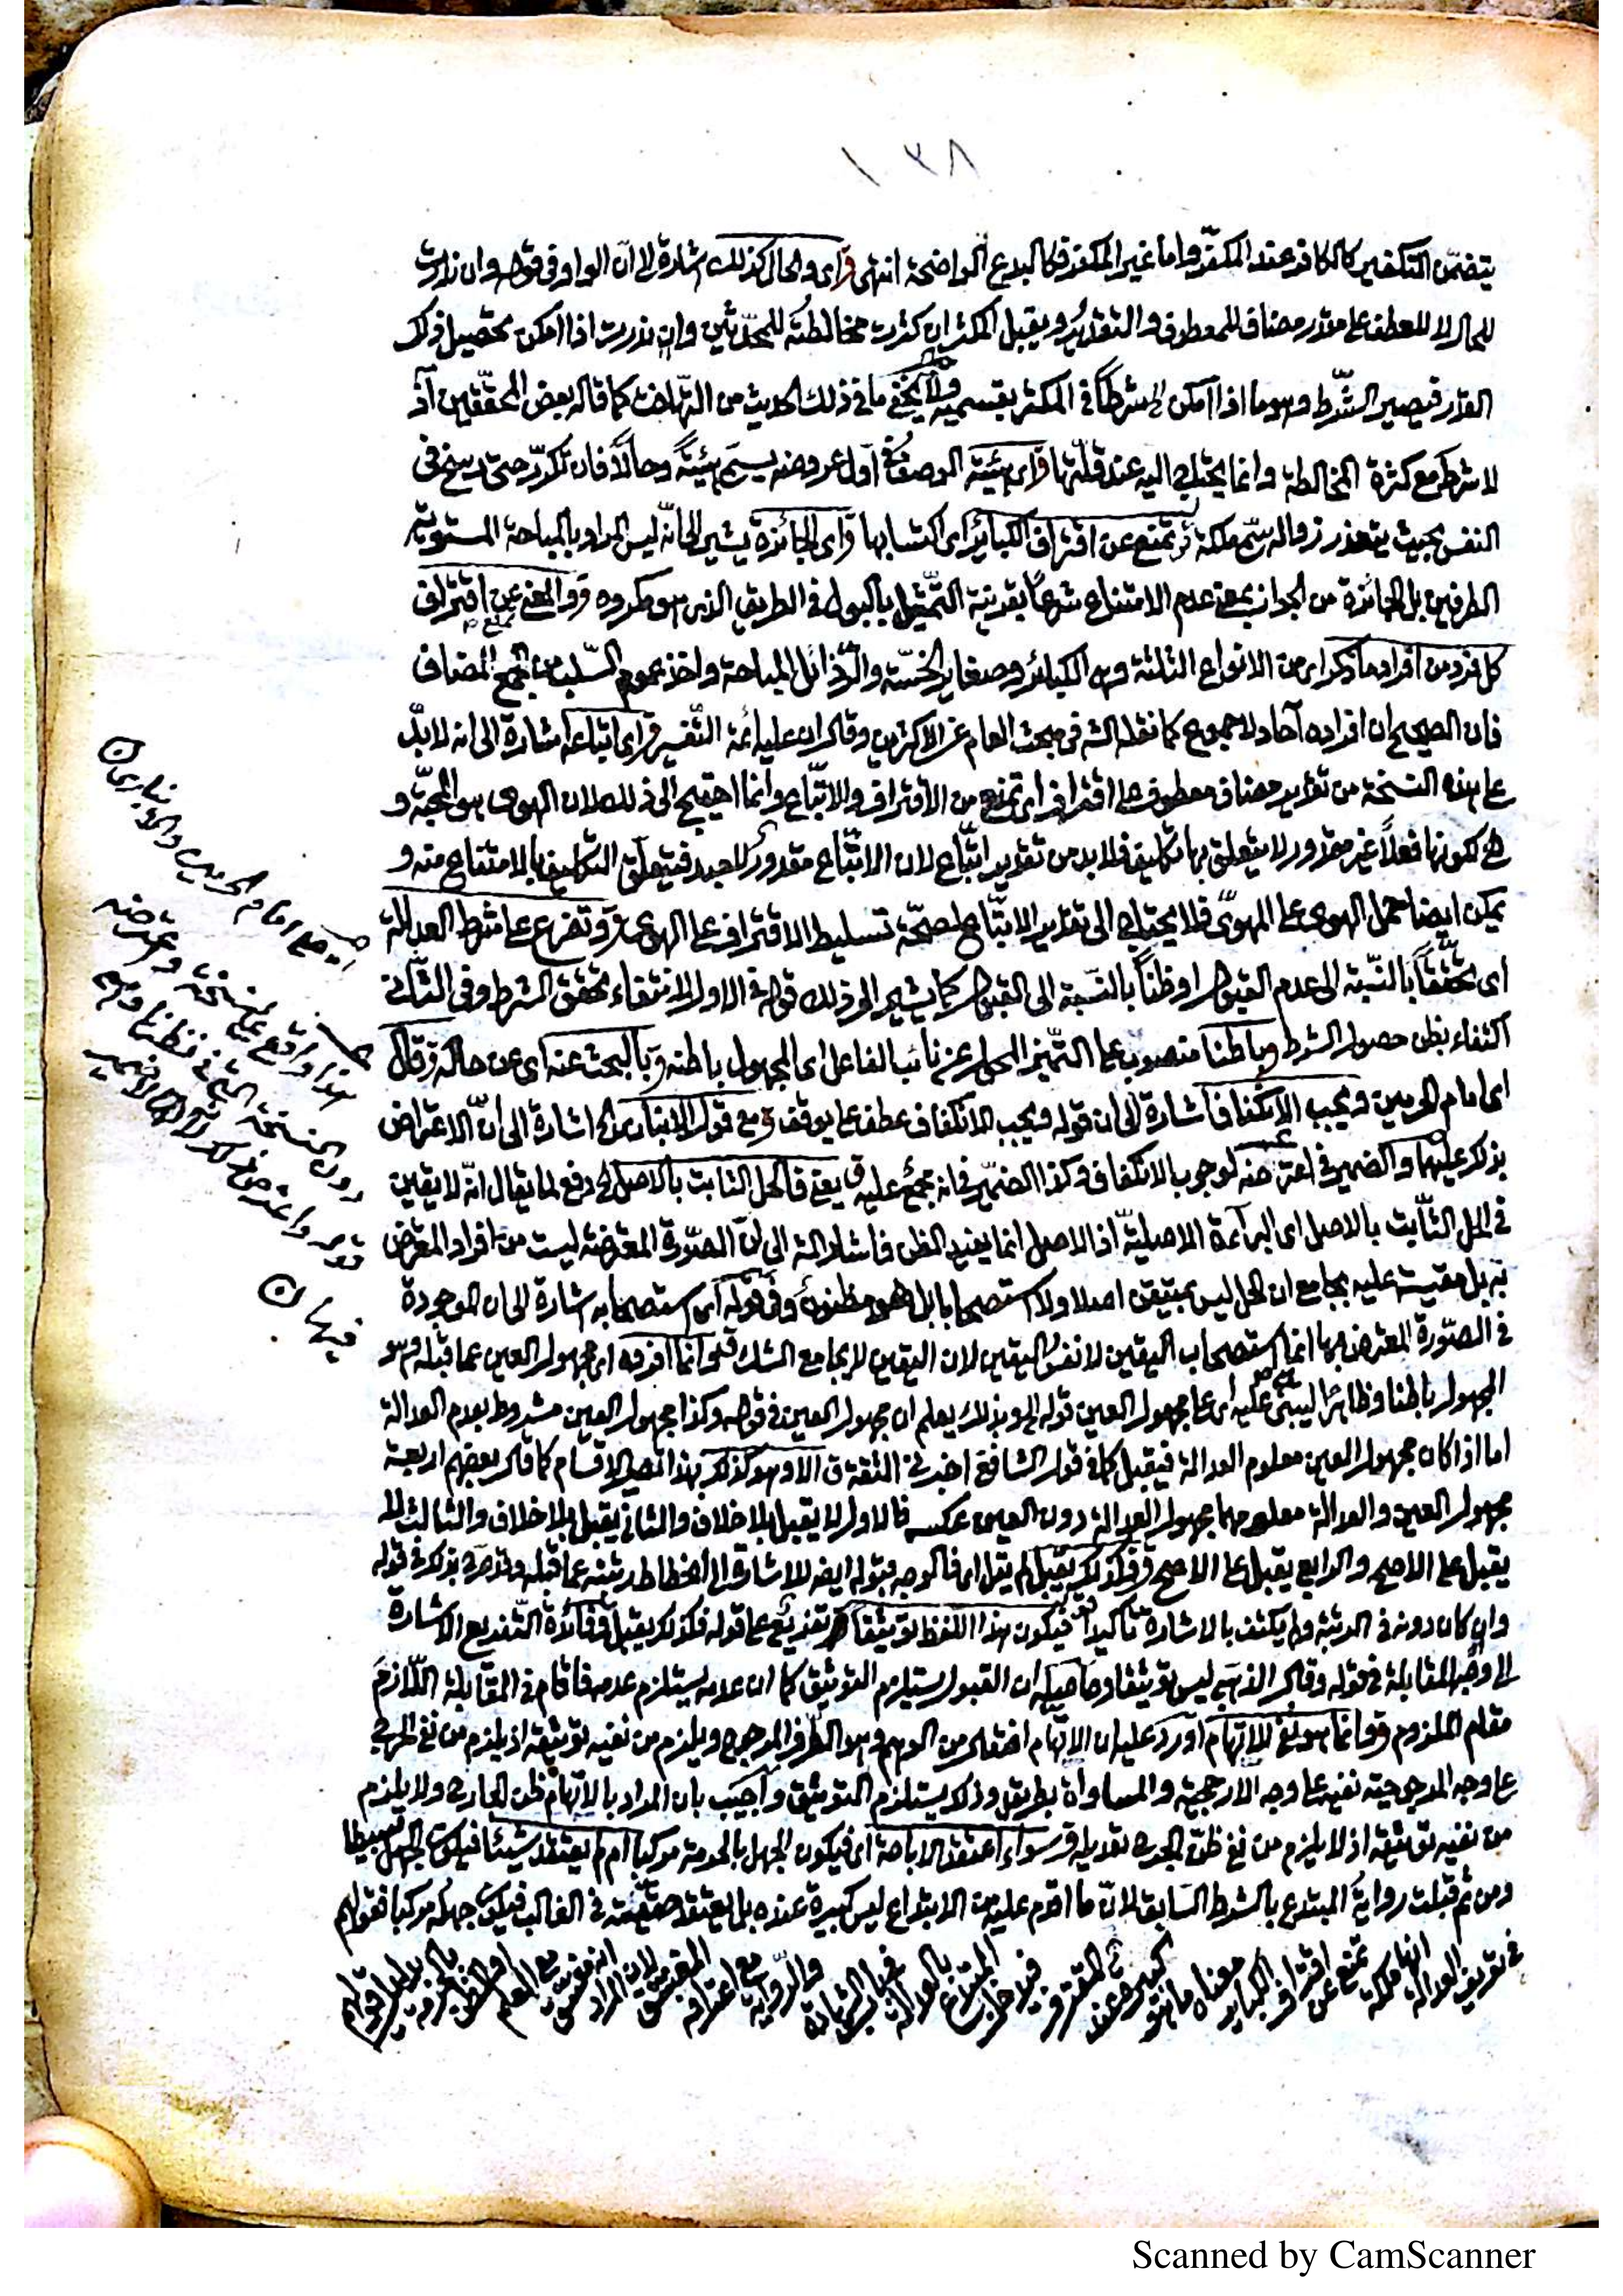 ١٣٨
يتضمن التكفير كالكافر عند المكفر واما غير المكفر فكالبدع الواضحة انتهى ق اى والحال كذلك اشارة الى ان الواو فى قوله وان ندرت
للحال لا للعطف على مقدر مضاف للمعطوف والتقدير ويقبل المكثر ان كثرت مخالطته للمحدثين وان ندرت اذا امكن تحصيل ذلك
القدر فيصير الشرط وهو ما اذا امكن الخ شرطا فى المكثر بقسميه ولا يخفى ما فى ذلك الحديث من التهافت كما قاله بعض المحققين اذ
لا شرط مع كثرة المخالطة وانما يحتاج اليه عند قلتها ق اى هيئة الوصف فى اول عروضه يسمى هيئة وحالا فان تكرر حتى رسخ فى
النفس بحيث يتعذر زواله سمى ملكة ق تمنع عن اقتراف الكبائر اى اكتسابها ق اى الجائزة يشير الى انه ليس المراد بالمباحة المستوية
الطرفين بل الجائزة من الجواز بمعنى عدم الامتناع شرعا بقرينة التمثيل بالبول فى الطريق الذى هو مكروه ق والمعنى عن اقتراف
كل فرد من افراد ما ذكر اى من الانواع الثلثة وهى الكبائر وصغاير الخسة والرذائل المباحة واخذ عموم السلب من الجمع المضاف
فان الصحيح ان افراده آحاد لا جموع كما نقله الشه فى مبحث العام عن الاكثرين وقال ان عليه ائمة التفسير ق اى اتباعه اشارة الى انه لا بد
على هذه النسخة من تقدير مضاف معطوف على اقتراف اى تمنع من الاقتراف والاتباع وانما احتيج الى ذلك لان الهوى هو المحبة و
هى لكونها فعلا غير مقدور لا يتعلق بها تكليف فلا بد من تقدير اتباع لان الاتباع مقدور للعبد فيتعلق التكليف بالامتناع منه و
يمكن ايضا حمل الهوى على المهوى فلا يحتاج الى تقدير الاتباع لصحة تسليط الاقتراف على الهوى ق وتفرع على شرط العدالة
اى تحققا بالنسبة الى عدم القبول او ظنا بالنسبة الى القبول كما يشير الى ذلك قوله فى الاول لانتفاء تحقق الشرط وفى الثانى
اكتفاء بظن حصول الشرط وباطنا منصوب على التميز المحول عن نائب الفاعل اى المجهول باطنه ق بالبحث عنه اى عن حاله ق قال
اى امام الحرمين ويجب الانكفاف اشارة الى ان قوله ويجب الانكفاف عطف على يوقف ق مع قول الابيارى الخ اشارة الى ان الاعتراض
بذكر عليهما والضمير فى اعترضه لوجوب الانكفاف وكذا الضمير فى انه مجمع عليه ق يعنى فالحل الثابت بالاصل الخ دفع لما يقال انه لا يقين
فى الحل الثابت بالاصل اى البرآءة الاصلية اذ الاصل انما يفيد الظن فاشار الشه الى ان الصورة المعترضة ليست من افراد المعترض
به بل مقيسة عليه بجامع ان الحل ليس بمتيقن اصلا ولا استصحابا بل هو مظنون وفى قوله اى استصحابه اشارة الى ان الموجودة
فى الصورة المعترض بها انما استصحاب اليقين لا نفس اليقين لان اليقين لا يجامع الشك ق وانما افرده اى مجهول العين عما قبله وهو
المجهول باطنا وظاهرا ليبنى عليه اى على مجهول العين قوله الخ وبذلك يعلم ان مجهول العين فى قوله وكذا مجهول العين مشروط بعدم العدالة
اما اذا كان مجهول العين معلوم العدالة فيقبل كما فى قول الشافعى اخبرنى الثقة ق الا وهو كذلك بهذا تصير الاقسام كما قال بعضهم اربعة
مجهول العين والعدالة معلومهما مجهول العدالة دون العين عكسه فالاول لا يقبل بلا خلاف والثانى يقبل بلا خلاف والثالث لا
يقبل على الاصح والرابع يقبل على الاصح ق فكذلك يقبل لم يقل اى فالوجه قبوله ايضا للاشارة الى انحطاط رتبته عما قبله وقد صرح بذلك فى قوله
وان كان دونه فى الرتبة ولم يكتف بالاشارة تأكيدا ق فيكون هذا اللفظ توثيقا تفريع على قوله فكذلك يقبل ق فائدة التفريع الاشارة
الى وجه المقابلة فى قوله وقال الذهبى ليس توثيقا وحاصله ان القبول يستلزم التوثيق كما ان عدمه يستلزم عدمه فاقام فى المقابلة اللازم
مقام الملزوم ق وانما هو نفى للاتهام اورد عليه ان الاتهام افتعال من الوهم وهو الطرف المرجوح ويلزم من نفيه توثيقه اذ يلزم من نفى الجرح
على وجه المرجوحية نفيه على وجه الارجحية والمساواة بطريق وذلك يستلزم التوثيق واجيب بان المراد بالاتهام ظن الجارح ولا يلزم
من نفيه توثيقه اذ لا يلزم من نفى ظن الجرح تعديله ق سواء اعتقد الاباحة اى فيكون الجهل بالحرمة مركبا ام لم يعتقد شيئا فيكون الجهل بسيطا
ومن ثم قبلت رواية المبتدع بالشرط السابق لان ما اقدم عليه من الابتداع ليس كبيرة عنده بل يعتقد حقيته فى الغالب فيكون جهله مركبا فقولهم
فى تعريف العدالة انها ملكة تمنع عن اقتراف الكبائر معناه ما هو كبيرة عند المقترف فيدخل المبتدع
اى على امام الحرمين والابيارى
هذا واقع على نسخة واعترضه
دون نسخة
قوله واعترض
فيها
Scanned by CamScanner